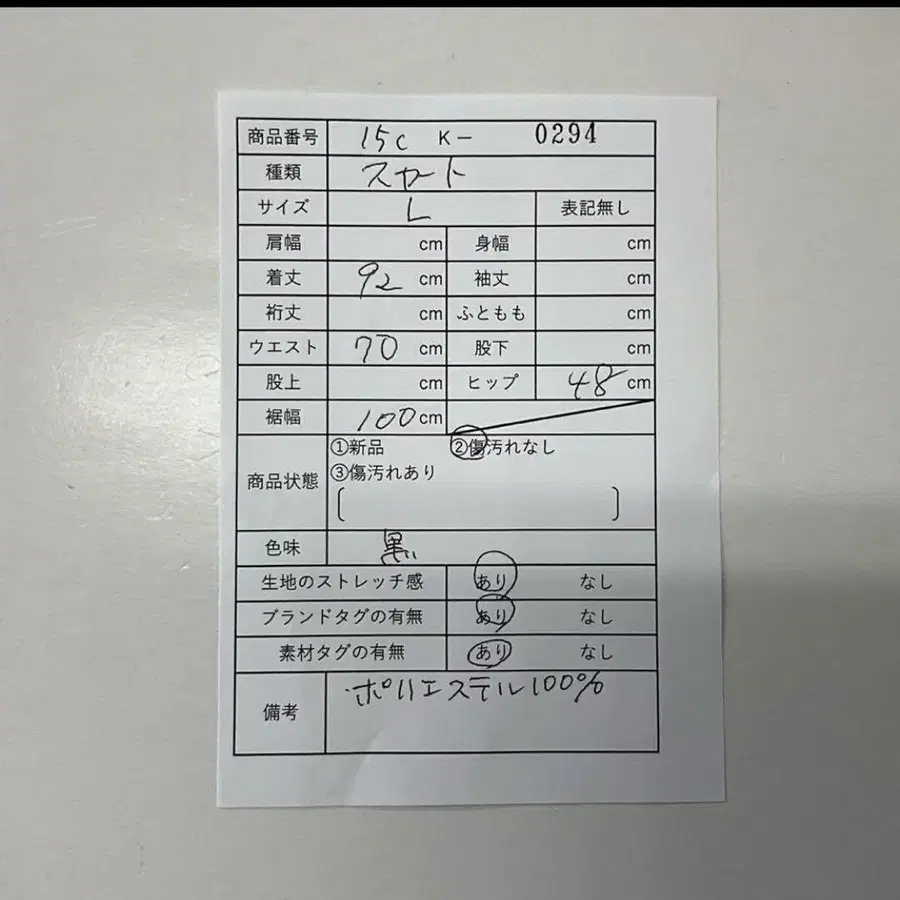 商品番号 15C K- 0294
種類 スカート
サイズ L 表記無し
肩幅 cm 身幅 cm
着丈 92 cm 袖丈 cm
裄丈 cm ふともも cm
ウエスト 70 cm 股下 cm
股上 cm ヒップ 48 cm
裾幅 100 cm
①新品 ②傷汚れなし
商品状態 ③傷汚れあり
色味 黒
生地のストレッチ感 あり なし
ブランドタグの有無 あり なし
素材タグの有無 あり なし
備考 ・ポリエステル100%